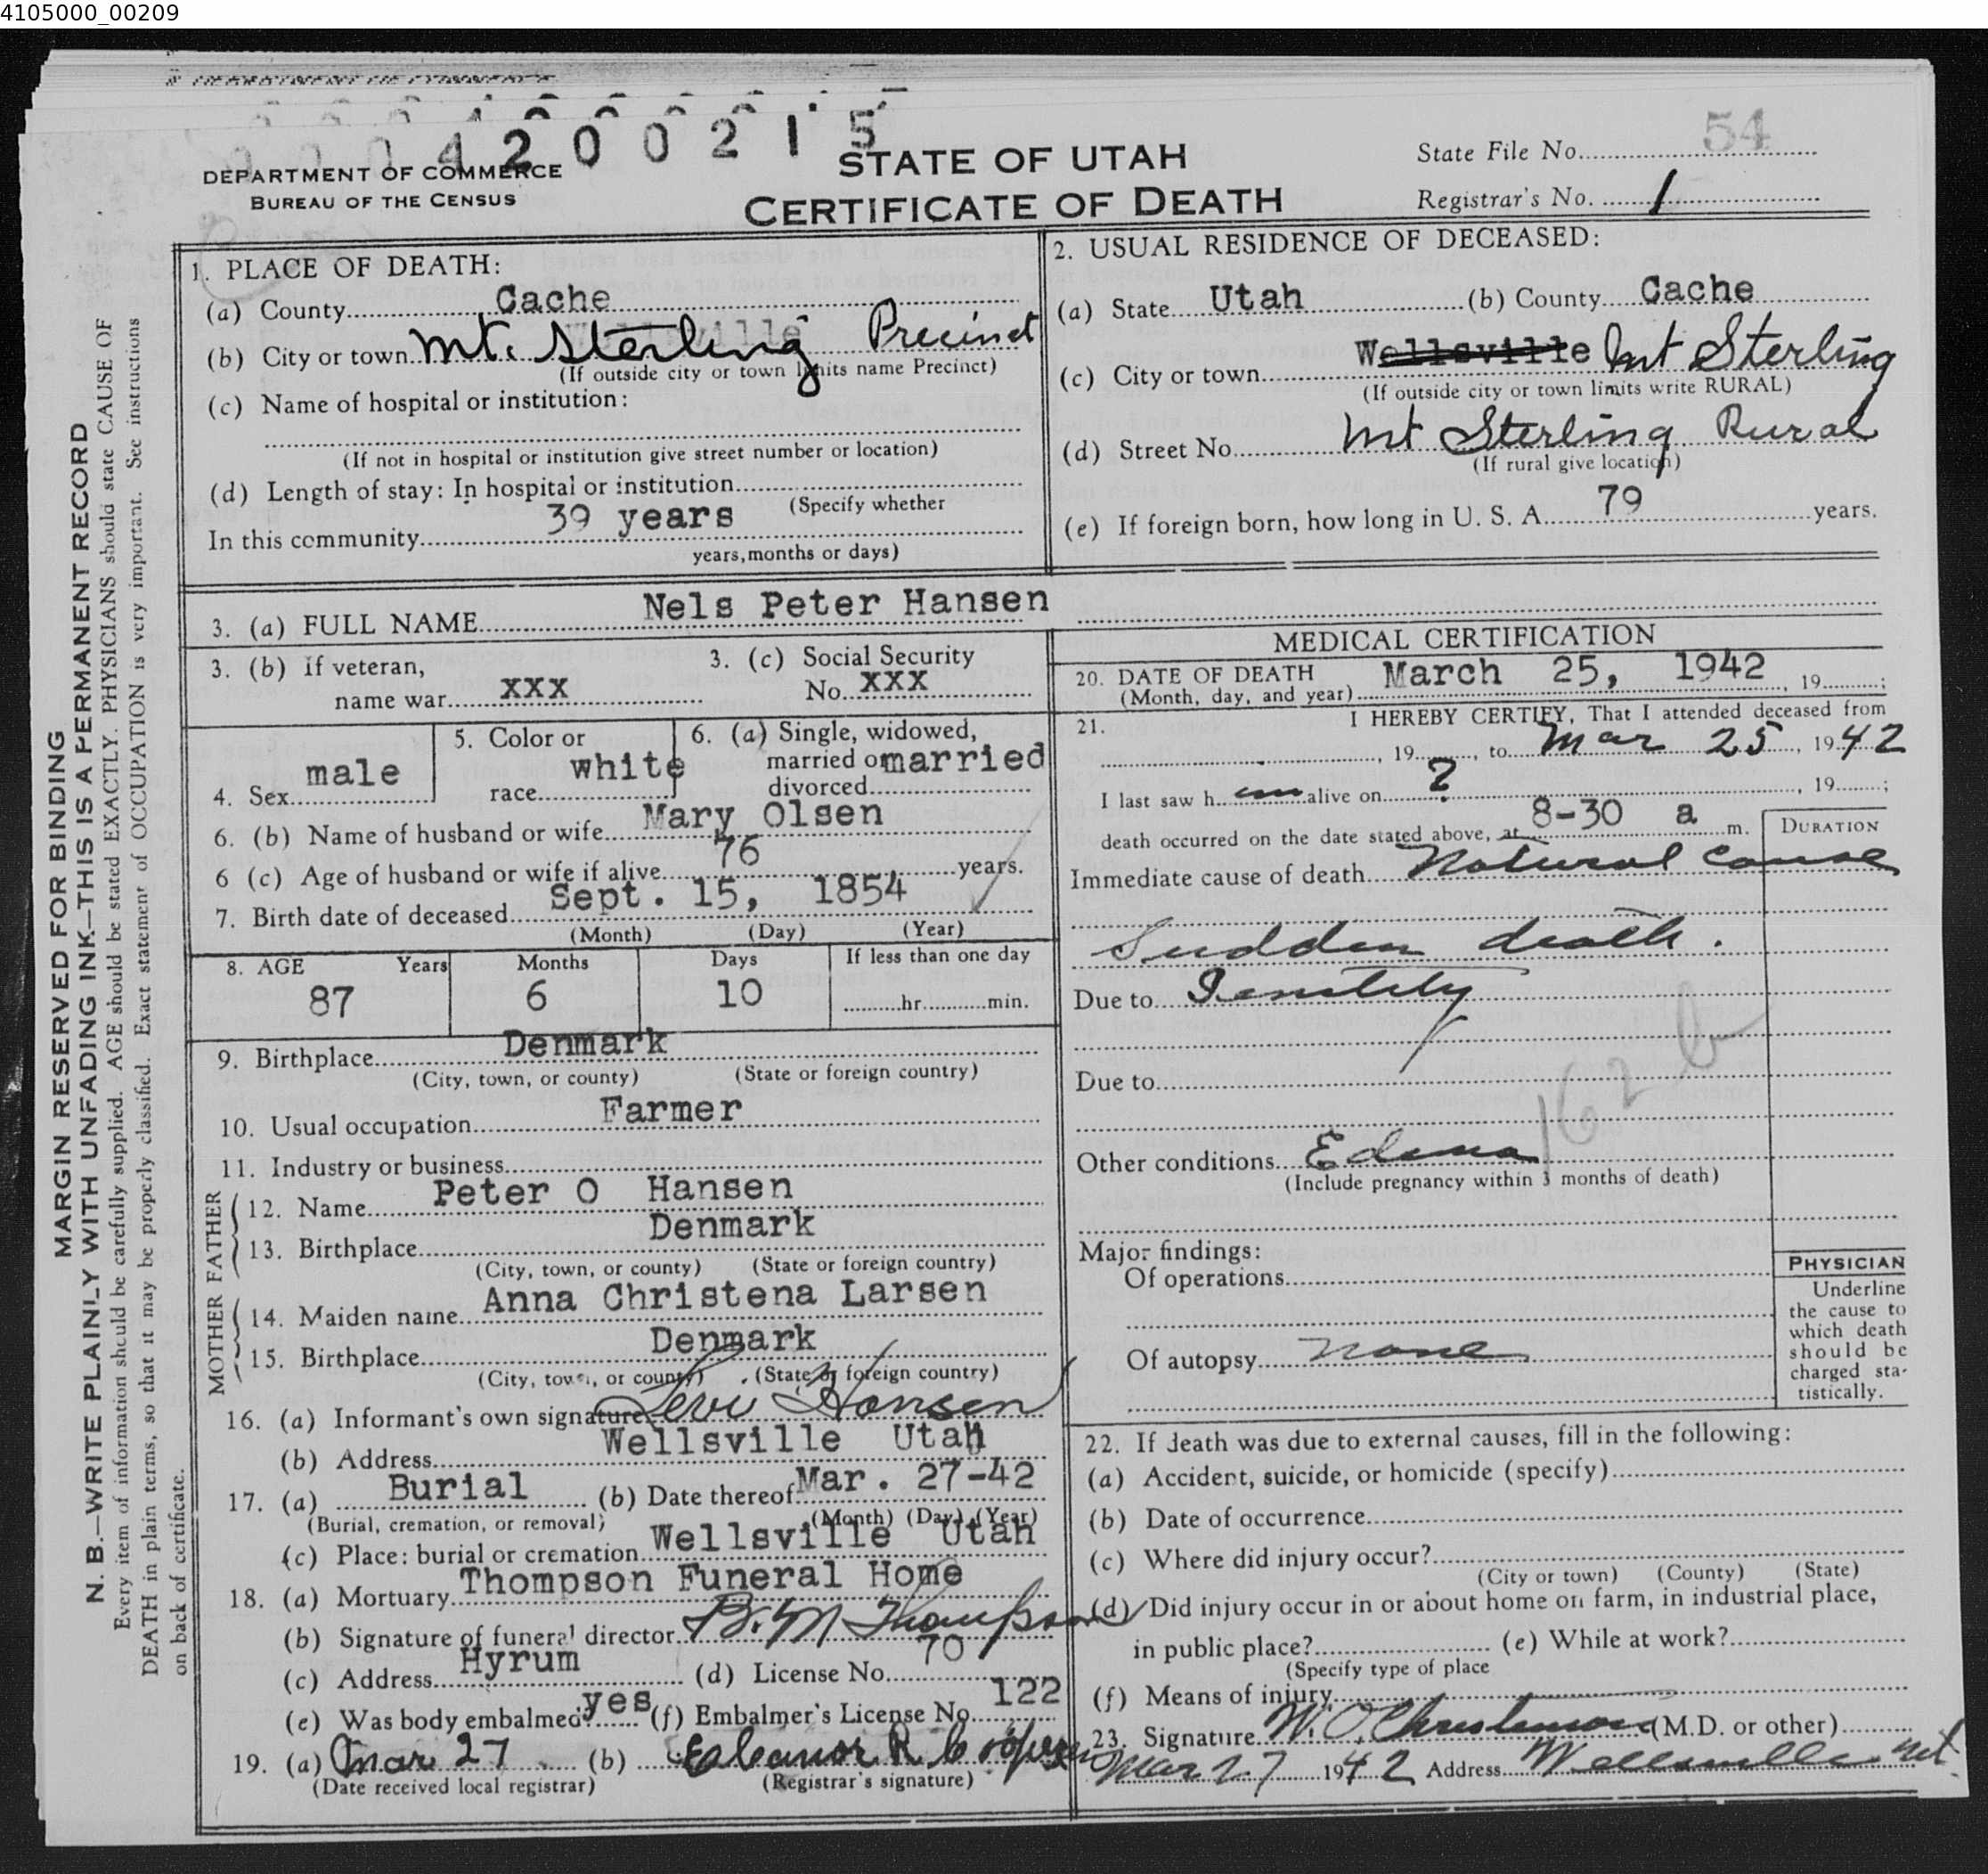 4105000_00209
0 0 0 4 2 0 0 2 1 5
DEPARTMENT OF COMMERCE
BUREAU OF THE CENSUS
STATE OF UTAH
CERTIFICATE OF DEATH
State File No. 54
Registrar's No. 1
MARGIN RESERVED FOR BINDING
N. B.—WRITE PLAINLY WITH UNFADING INK—THIS IS A PERMANENT RECORD
Every item of information should be carefully supplied. AGE should be stated EXACTLY. PHYSICIANS should state CAUSE OF
DEATH in plain terms, so that it may be properly classified. Exact statement of OCCUPATION is very important. See instructions
on back of certificate.
1. PLACE OF DEATH:
(a) County Cache
(b) City or town Mt. Sterling Precinct
(If outside city or town limits name Precinct)
(c) Name of hospital or institution:
(If not in hospital or institution give street number or location)
(d) Length of stay: In hospital or institution
(Specify whether
In this community 39 years
years, months or days)
2. USUAL RESIDENCE OF DECEASED:
(a) State Utah (b) County Cache
(c) City or town Wellsville Mt Sterling
(If outside city or town limits write RURAL)
(d) Street No. Mt Sterling Rural
(If rural give location)
(e) If foreign born, how long in U. S. A. 79 years.
3. (a) FULL NAME Nels Peter Hansen
3. (b) If veteran,
name war xxx
3. (c) Social Security
No. xxx
4. Sex male
5. Color or
race white
6. (a) Single, widowed,
married or married
divorced
6. (b) Name of husband or wife Mary Olsen
6 (c) Age of husband or wife if alive 76 years.
7. Birth date of deceased Sept. 15, 1854
(Month) (Day) (Year)
8. AGE Years Months Days If less than one day
87 6 10 hr. min.
9. Birthplace Denmark
(City, town, or county) (State or foreign country)
10. Usual occupation Farmer
11. Industry or business
FATHER
12. Name Peter O Hansen
13. Birthplace Denmark
(City, town, or county) (State or foreign country)
MOTHER
14. Maiden name Anna Christena Larsen
15. Birthplace Denmark
(City, town, or county) (State or foreign country)
16. (a) Informant's own signature Levi Hansen
(b) Address Wellsville Utah
17. (a) Burial (b) Date thereof Mar. 27-42
(Burial, cremation, or removal) (Month) (Day) (Year)
(c) Place: burial or cremation Wellsville Utah
18. (a) Mortuary Thompson Funeral Home
(b) Signature of funeral director B. M Thompson
(c) Address Hyrum (d) License No. 70
(e) Was body embalmed? yes (f) Embalmer's License No. 122
19. (a) Mar 27 (b) Ealeanor R
(Date received local registrar) (Registrar's signature)
MEDICAL CERTIFICATION
20. DATE OF DEATH March 25, 1942, 19 ;
(Month, day, and year)
21. I HEREBY CERTIFY, That I attended deceased from
, 19 , to Mar 25, 1942
I last saw him alive on ? , 19 ;
death occurred on the date stated above, at 8-30 a m.
DURATION
Immediate cause of death Natural cause
Sudden death.
Due to Senility
Due to
162 b
Other conditions Edema
(Include pregnancy within 3 months of death)
Major findings:
Of operations
Of autopsy none
PHYSICIAN
Underline
the cause to
which death
should be
charged sta-
tistically.
22. If death was due to external causes, fill in the following:
(a) Accident, suicide, or homicide (specify)
(b) Date of occurrence
(c) Where did injury occur?
(City or town) (County) (State)
(d) Did injury occur in or about home on farm, in industrial place,
in public place? (e) While at work?
(Specify type of place
(f) Means of injury
23. Signature W. O. Christenson (M.D. or other)
Mar 27 1942 Address Wellsville Ut.